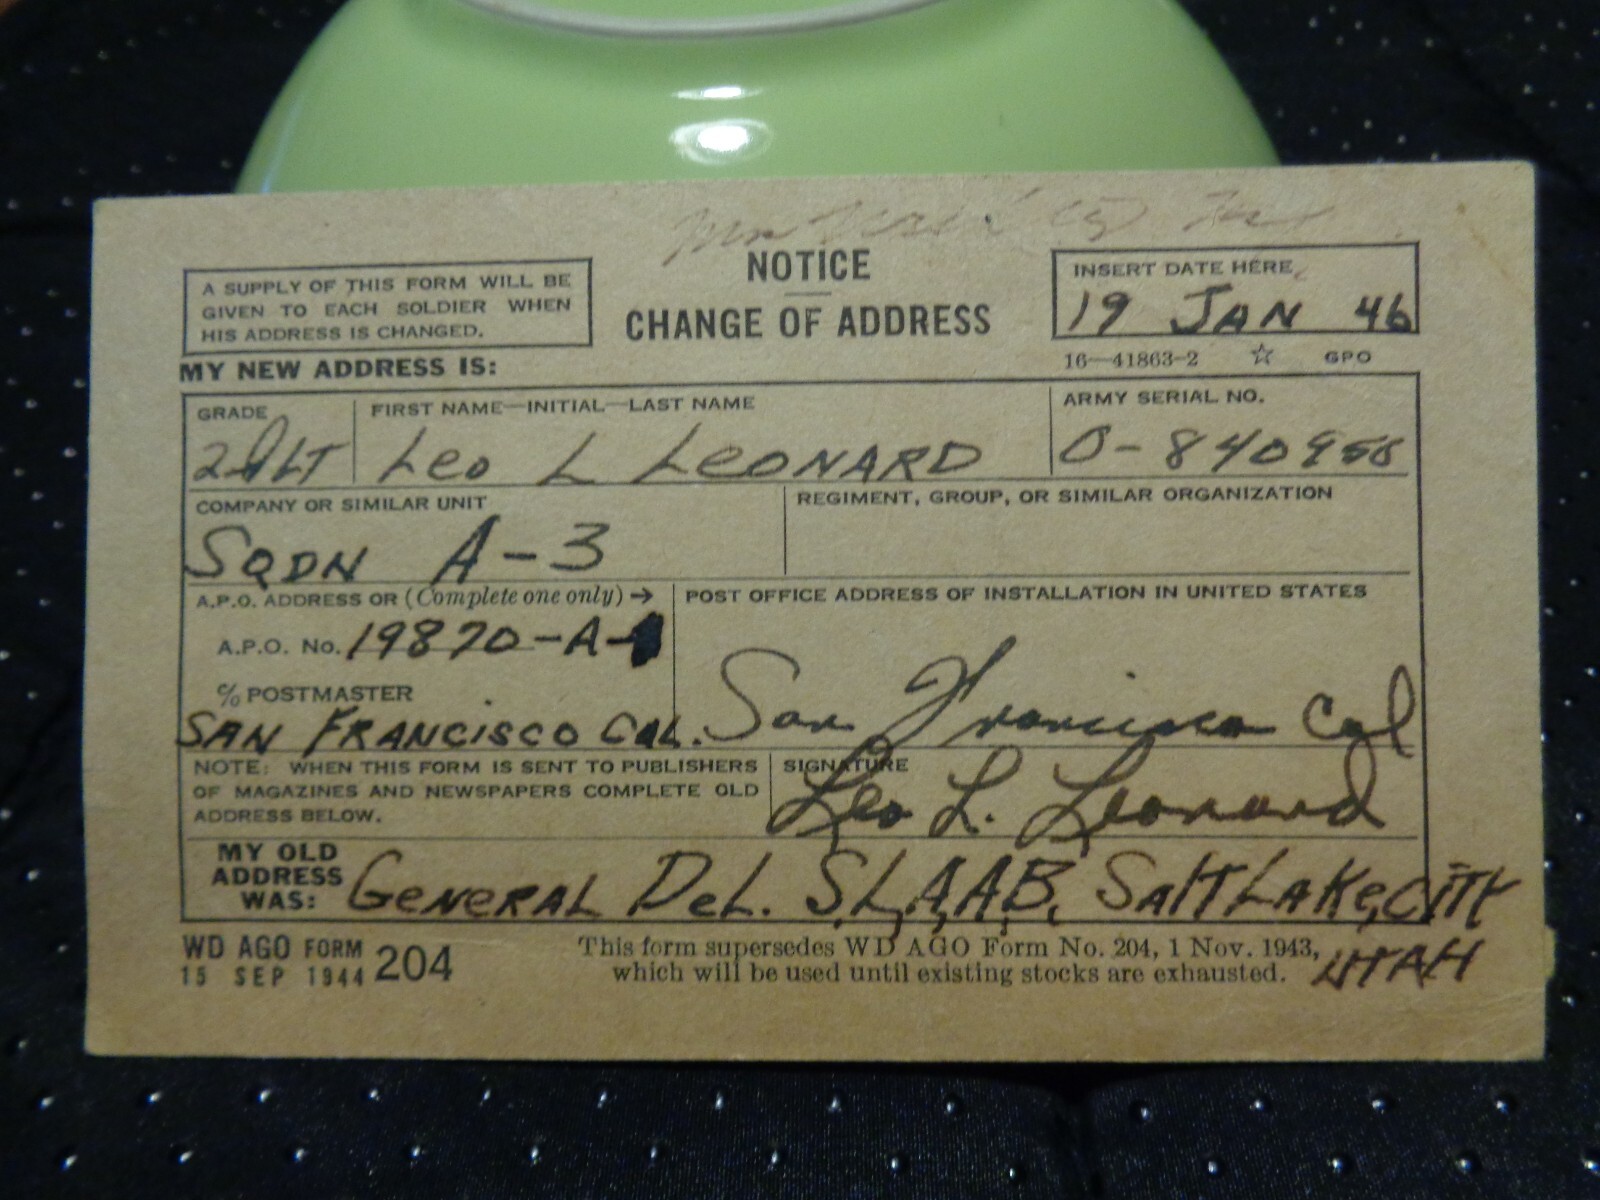 A SUPPLY OF THIS FORM WILL BE
GIVEN TO EACH SOLDIER WHEN
HIS ADDRESS IS CHANGED.
NOTICE
CHANGE OF ADDRESS
INSERT DATE HERE
19 JAN 46
16—41863-2 ☆ GPO
MY NEW ADDRESS IS:
GRADE
2d LT
FIRST NAME—INITIAL—LAST NAME
Leo L LEONARD
ARMY SERIAL NO.
COMPANY OR SIMILAR UNIT
SQDN A-3
REGIMENT, GROUP, OR SIMILAR ORGANIZATION
A.P.O. ADDRESS OR (Complete one only) →
A.P.O. No. 19870-A-
% POSTMASTER
SAN FRANCISCO CAL.
POST OFFICE ADDRESS OF INSTALLATION IN UNITED STATES
San Francisco Cal
NOTE: WHEN THIS FORM IS SENT TO PUBLISHERS
OF MAGAZINES AND NEWSPAPERS COMPLETE OLD
ADDRESS BELOW.
SIGNATURE
Leo L. Leonard
MY OLD
ADDRESS
WAS:
GENERAL DeL. S.L.A.A.B. SaltLake,CITY
UTAH
WD AGO FORM 204
15 SEP 1944
This form supersedes WD AGO Form No. 204, 1 Nov. 1943,
which will be used until existing stocks are exhausted.